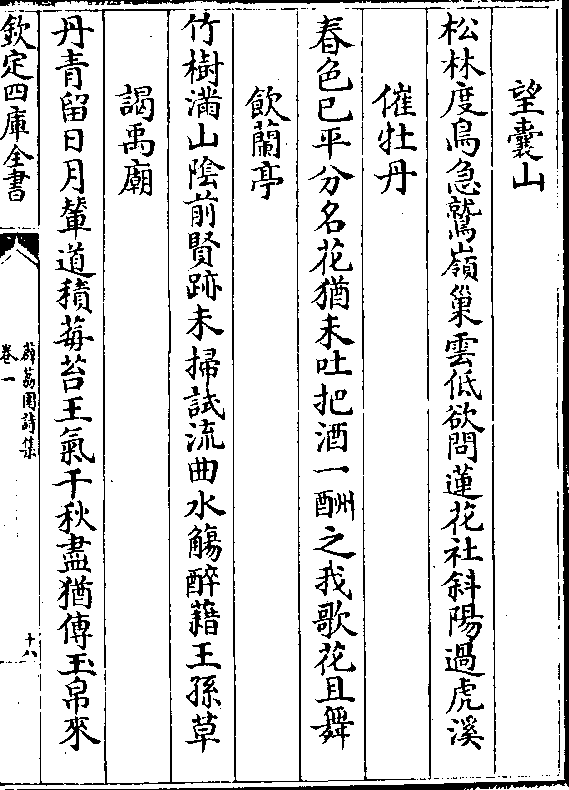 望囊山
松林度鳥急鷲嶺巢雲低欲問蓮花社斜陽過虎溪
催牡丹
春色已平分名花猶未吐把酒一酬之我歌花且舞
飲蘭亭
竹樹滿山陰前賢跡未掃試流曲水觴醉藉王孫草
謁禹廟
丹青留日月輦道積莓苔王氣千秋盡猶傳玉帛來
欽定四庫全書
薜荔園詩集
卷一
十八